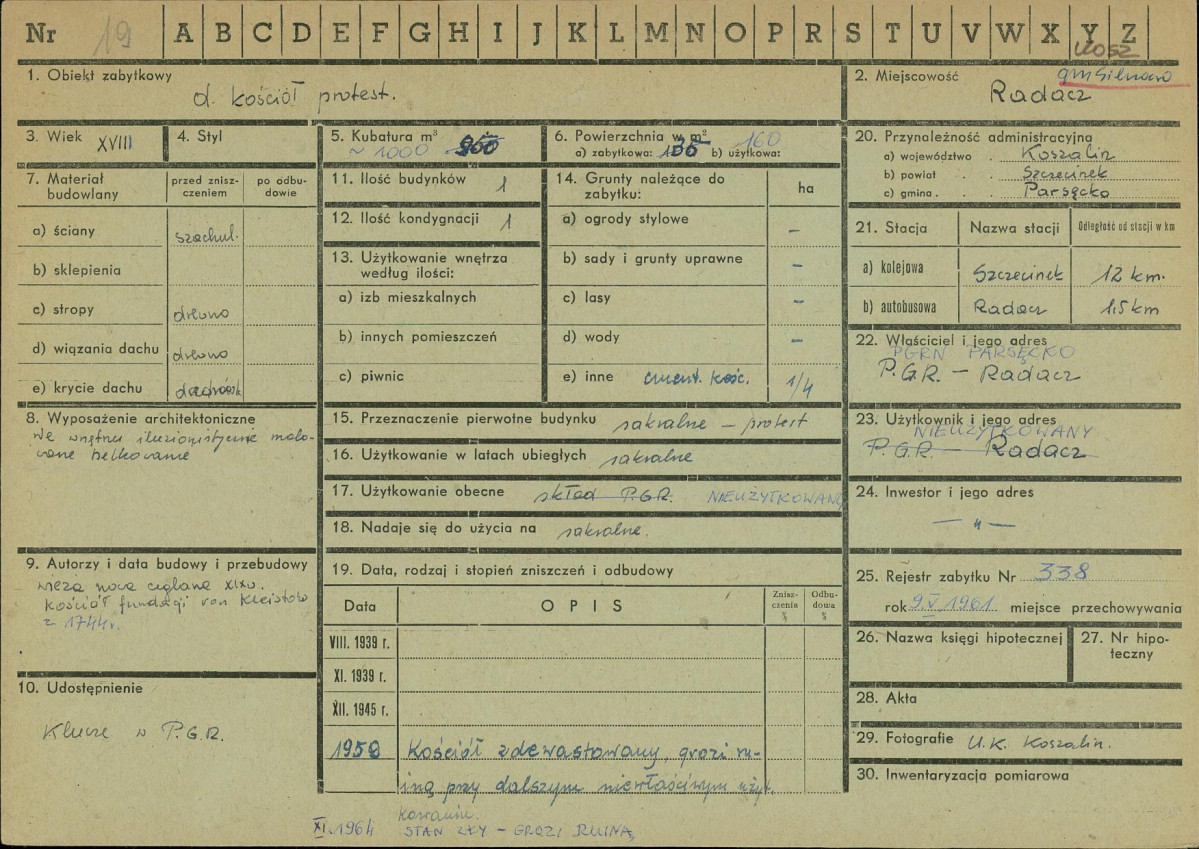 Nr 19 A B C D E F G H I J K L M N O P R S T U V W X Y Z
KOSZ
1. Obiekt zabytkowy
d. kościół protest.
2. Miejscowość
Radacz
3. Wiek XVIII
4. Styl
5. Kubatura m³
~ 1000
6. Powierzchnia w m²
a) zabytkowa: 135 b) użytkowa: 160
7. Materiał budowlany
przed zniszczeniem
po odbudowie
a) ściany szachul.
b) sklepienia
c) stropy drewno
d) wiązania dachu drewno
e) krycie dachu
8. Wyposażenie architektoniczne
We wnętrzu iluzionistycznie malo-
wane belkowanie
9. Autorzy i data budowy i przebudowy
wieża nowa ceglana XIX w.
kościół fundacji von Kleistów
z 1744r.
10. Udostępnienie
Klucze w P.G.R.
11. Ilość budynków 1
12. Ilość kondygnacji 1
13. Użytkowanie wnętrza
według ilości:
a) izb mieszkalnych
b) innych pomieszczeń
c) piwnic
14. Grunty należące do
zabytku:
ha
a) ogrody stylowe –
b) sady i grunty uprawne –
c) lasy –
d) wody –
e) inne cment. kość. 1/4
15. Przeznaczenie pierwotne budynku sakralne – protest
16. Użytkowanie w latach ubiegłych sakralne
17. Użytkowanie obecne skład P.G.R. NIEUŻYTKOWANY
18. Nadaje się do użycia na sakralne.
19. Data, rodzaj i stopień zniszczeń i odbudowy
Data
OPIS
Znisz-
czenia
%
Odbu-
dowa
%
VIII. 1939 r.
XI. 1939 r.
XII. 1945 r.
1959 Kościół zdewastowany, grozi ru-
iną przy dalszym niewłaściwym użyt.
kowaniu.
XI.1964 STAN ZŁY – GROZI RUINĄ
20. Przynależność administracyjna
a) województwo . Koszalin
b) powiat . . Szczecinek
c) gmina . . Parsęcko
21. Stacja
Nazwa stacji
Odległość od stacji w km
a) kolejowa Szczecinek 12 km.
b) autobusowa Radacz 1,5 km
22. Właściciel i jego adres
PGRN PARSĘCKO
P.G.R. – Radacz
23. Użytkownik i jego adres
NIEUŻYTKOWANY
P.G.R. – Radacz
24. Inwestor i jego adres
— „ —
25. Rejestr zabytku Nr 338
rok 9.V.1961 miejsce przechowywania
26. Nazwa księgi hipotecznej
27. Nr hipo-
teczny
28. Akta
29. Fotografie U.K. Koszalin.
30. Inwentaryzacja pomiarowa